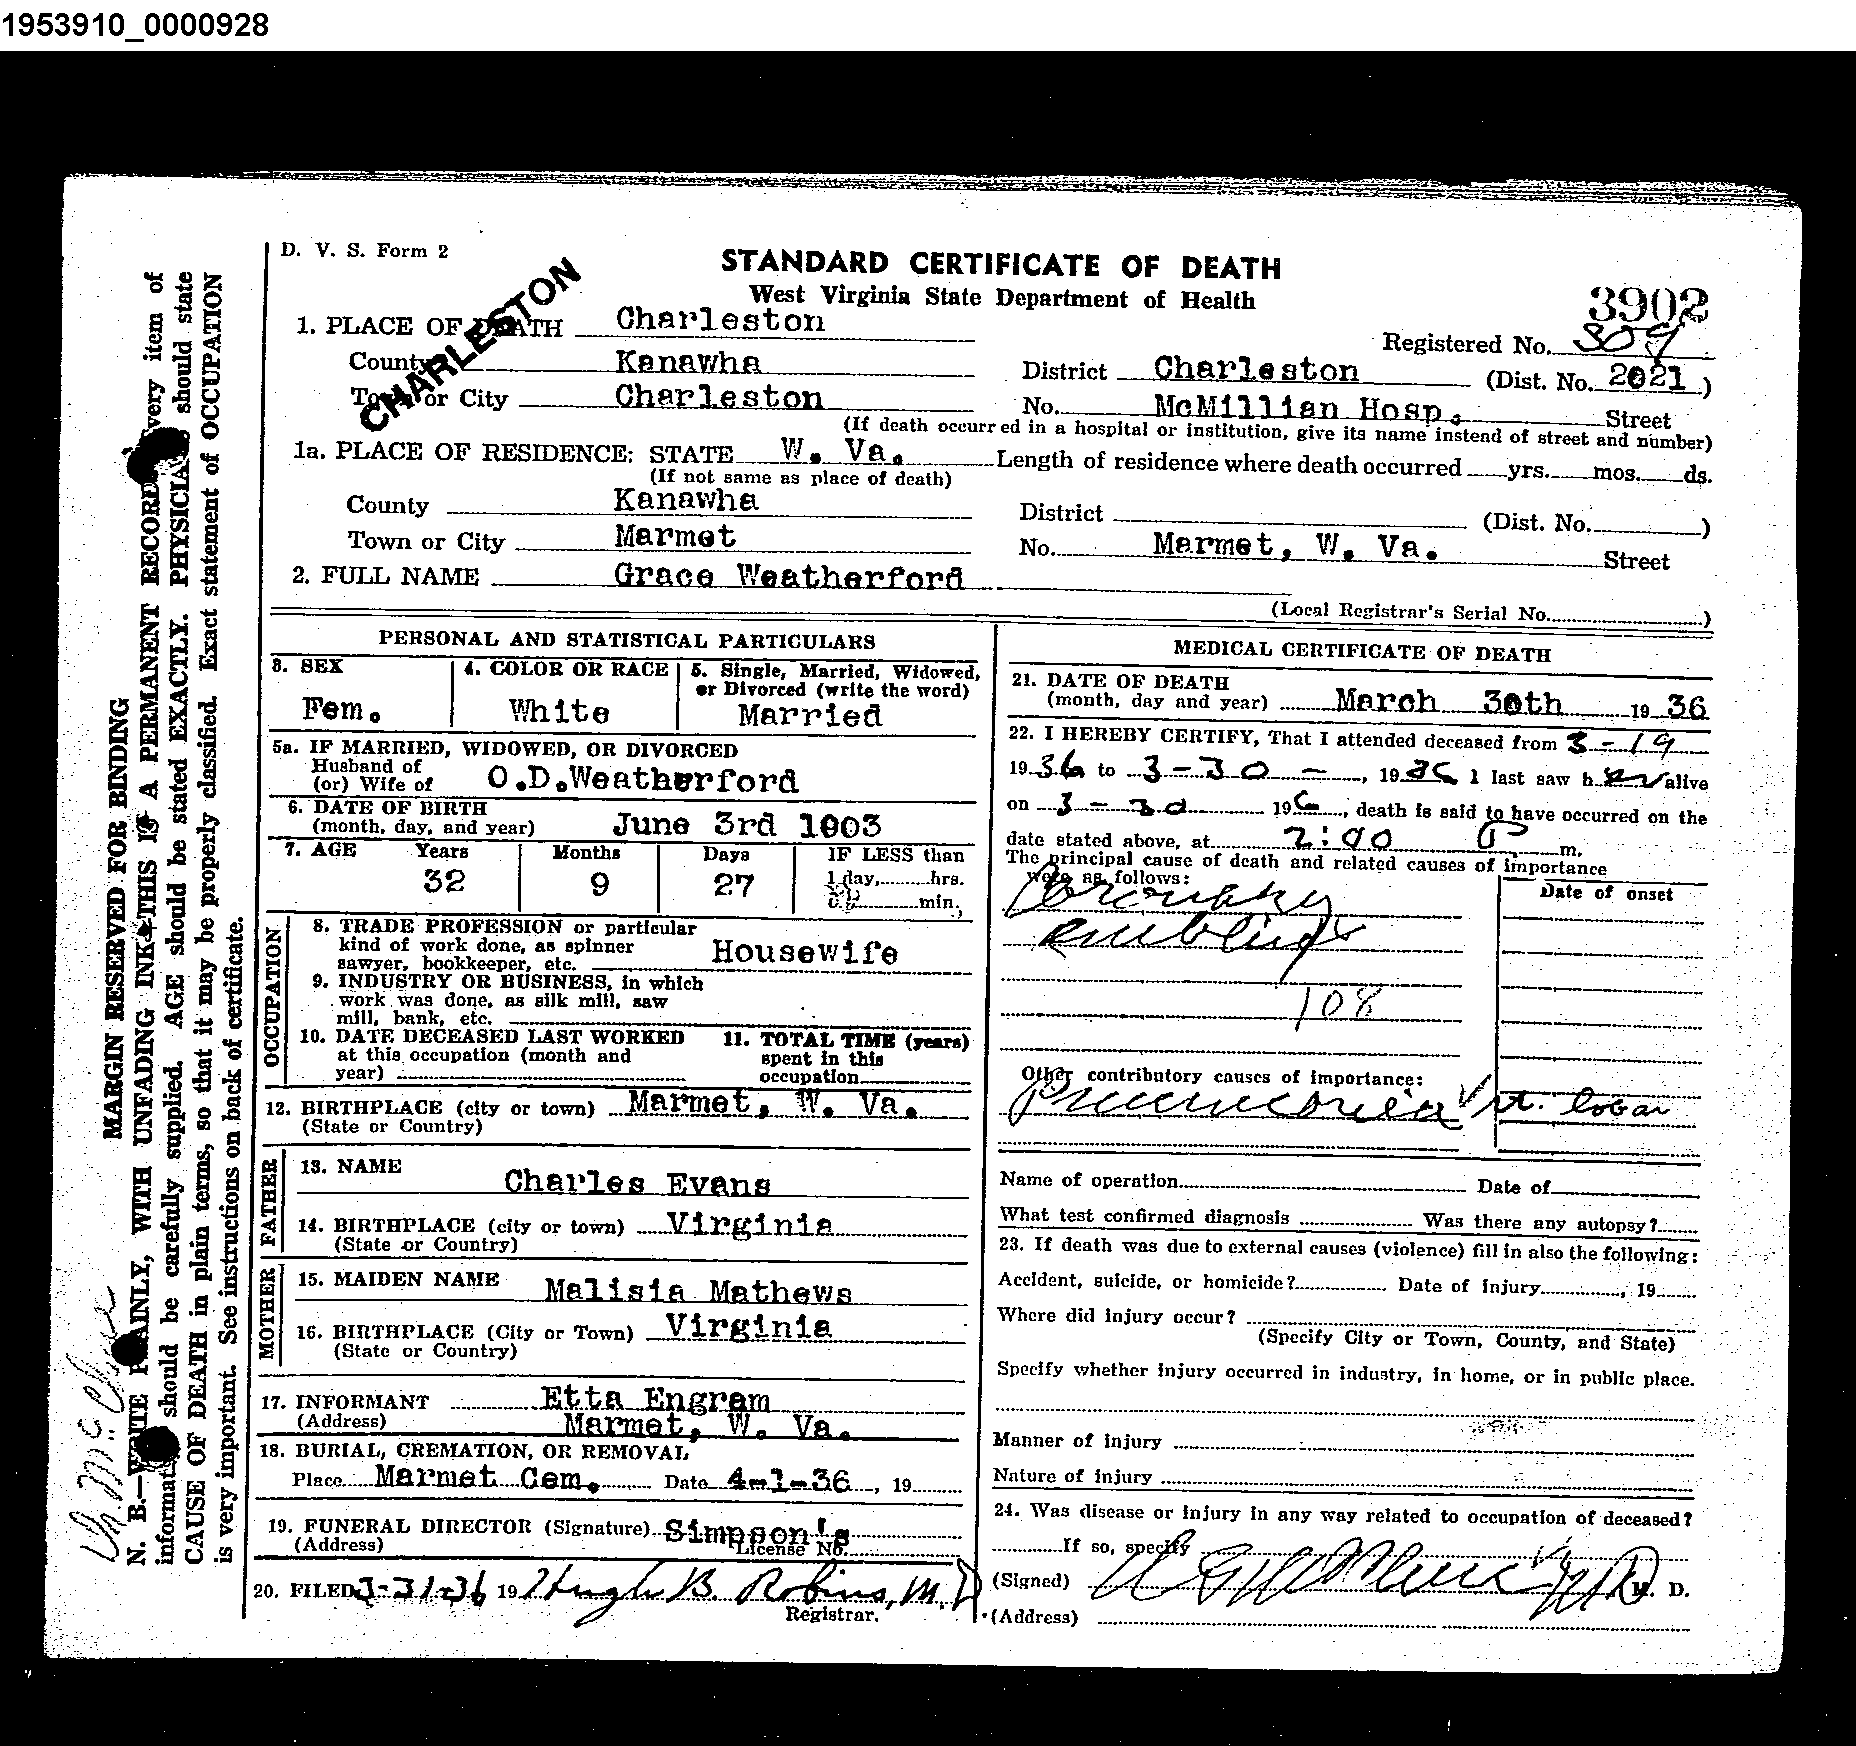 1953910_0000928
D. V. S. Form 2
STANDARD CERTIFICATE OF DEATH
West Virginia State Department of Health
3902
CHARLESTON
1. PLACE OF DEATH Charleston
Registered No. 309
County Kanawha
District Charleston (Dist. No. 2021)
Town or City Charleston
No. McMillian Hosp. Street
(If death occurred in a hospital or institution, give its name instend of street and number)
1a. PLACE OF RESIDENCE: STATE W. Va. Length of residence where death occurred yrs. mos. ds.
(If not same as place of death)
County Kanawha
District (Dist. No. )
Town or City Marmet
No. Marmet, W. Va. Street
2. FULL NAME Grace Weatherford
(Local Registrar's Serial No. )
PERSONAL AND STATISTICAL PARTICULARS
3. SEX
Fem.
4. COLOR OR RACE
White
5. Single, Married, Widowed,
or Divorced (write the word)
Married
5a. IF MARRIED, WIDOWED, OR DIVORCED
Husband of
(or) Wife of O.D.Weatherford
6. DATE OF BIRTH
(month, day, and year) June 3rd 1003
7. AGE Years Months Days IF LESS than
32 9 27 1 day, hrs.
or min.
OCCUPATION
8. TRADE PROFESSION or particular
kind of work done, as spinner
sawyer, bookkeeper, etc. Housewife
9. INDUSTRY OR BUSINESS, in which
work was done, as silk mill, saw
mill, bank, etc.
10. DATE DECEASED LAST WORKED
at this occupation (month and
year)
11. TOTAL TIME (years)
spent in this
occupation
12. BIRTHPLACE (city or town) Marmet, W. Va.
(State or Country)
FATHER
13. NAME Charles Evans
14. BIRTHPLACE (city or town) Virginia
(State or Country)
MOTHER
15. MAIDEN NAME Malisia Mathews
16. BIRTHPLACE (City or Town) Virginia
(State or Country)
17. INFORMANT Etta Engram
(Address) Marmet, W. Va.
18. BURIAL, CREMATION, OR REMOVAL
Place Marmet Cem. Date 4-1-36, 19
19. FUNERAL DIRECTOR (Signature) Simpson's
(Address) License No.
20. FILED 3-31-36 19 Hugh B. Robins, M.D
Registrar.
MEDICAL CERTIFICATE OF DEATH
21. DATE OF DEATH
(month, day and year) March 30th 19 36
22. I HEREBY CERTIFY, That I attended deceased from 3-19
1936 to 3-30-, 1936 I last saw her alive
on 3-30 196, death is said to have occurred on the
date stated above, at 2:00 P. m.
The principal cause of death and related causes of importance
were as follows:
Date of onset
Coronary
embolism
108
Other contributory causes of importance:
Pneumonia rt. lobar
Name of operation Date of
What test confirmed diagnosis Was there any autopsy?
23. If death was due to external causes (violence) fill in also the following:
Accident, suicide, or homicide? Date of injury , 19
Where did injury occur?
(Specify City or Town, County, and State)
Specify whether injury occurred in industry, in home, or in public place.
Manner of injury
Nature of injury
24. Was disease or injury in any way related to occupation of deceased?
If so, specify
(Signed) M. D.
(Address)
MARGIN RESERVED FOR BINDING
N. B.—WRITE PLAINLY, WITH UNFADING INK—THIS IS A PERMANENT RECORD. Every item of
information should be carefully supplied. AGE should be stated EXACTLY. PHYSICIANS should state
CAUSE OF DEATH in plain terms, so that it may be properly classified. Exact statement of OCCUPATION
is very important. See instructions on back of certificate.